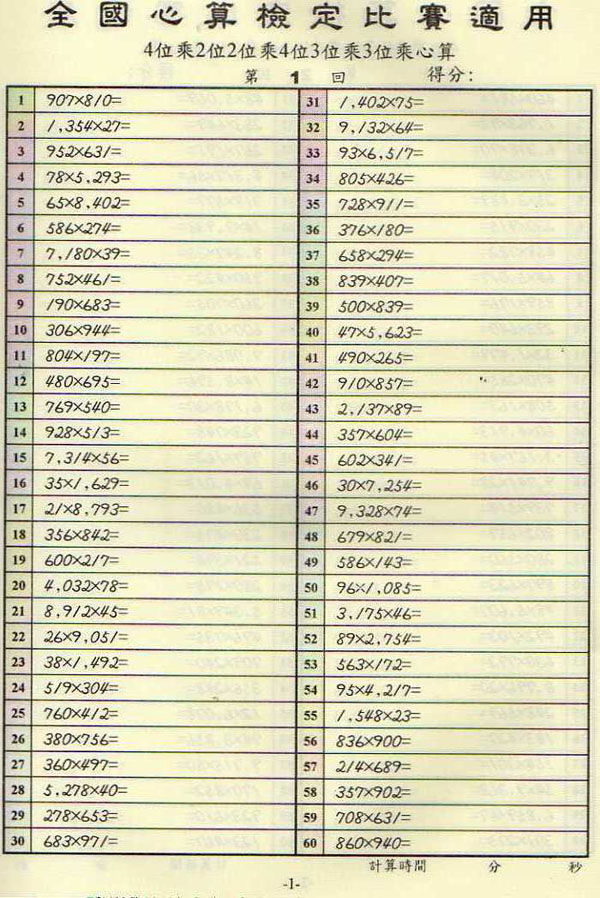 全國心算檢定比賽適用
4位乘2位2位乘4位3位乘3位乘心算
第 1 回 得分:
1 907×810=
2 1,354×27=
3 952×631=
4 78×5,293=
5 65×8,402=
6 586×274=
7 7,180×39=
8 752×461=
9 190×683=
10 306×944=
11 804×197=
12 480×695=
13 769×540=
14 928×513=
15 7,314×56=
16 35×1,629=
17 21×8,793=
18 356×842=
19 600×217=
20 4,032×78=
21 8,912×45=
22 26×9,051=
23 38×1,492=
24 519×304=
25 760×412=
26 380×756=
27 360×497=
28 5,278×40=
29 278×653=
30 683×971=
31 1,402×75=
32 9,132×64=
33 93×6,517=
34 805×426=
35 728×911=
36 376×180=
37 658×294=
38 839×407=
39 500×839=
40 47×5,623=
41 490×265=
42 910×857=
43 2,137×89=
44 357×604=
45 602×341=
46 30×7,254=
47 9,328×74=
48 679×821=
49 586×143=
50 96×1,085=
51 3,175×46=
52 89×2,754=
53 563×172=
54 95×4,217=
55 1,548×23=
56 836×900=
57 214×689=
58 357×902=
59 708×631=
60 860×940=
計算時間 分 秒
-1-